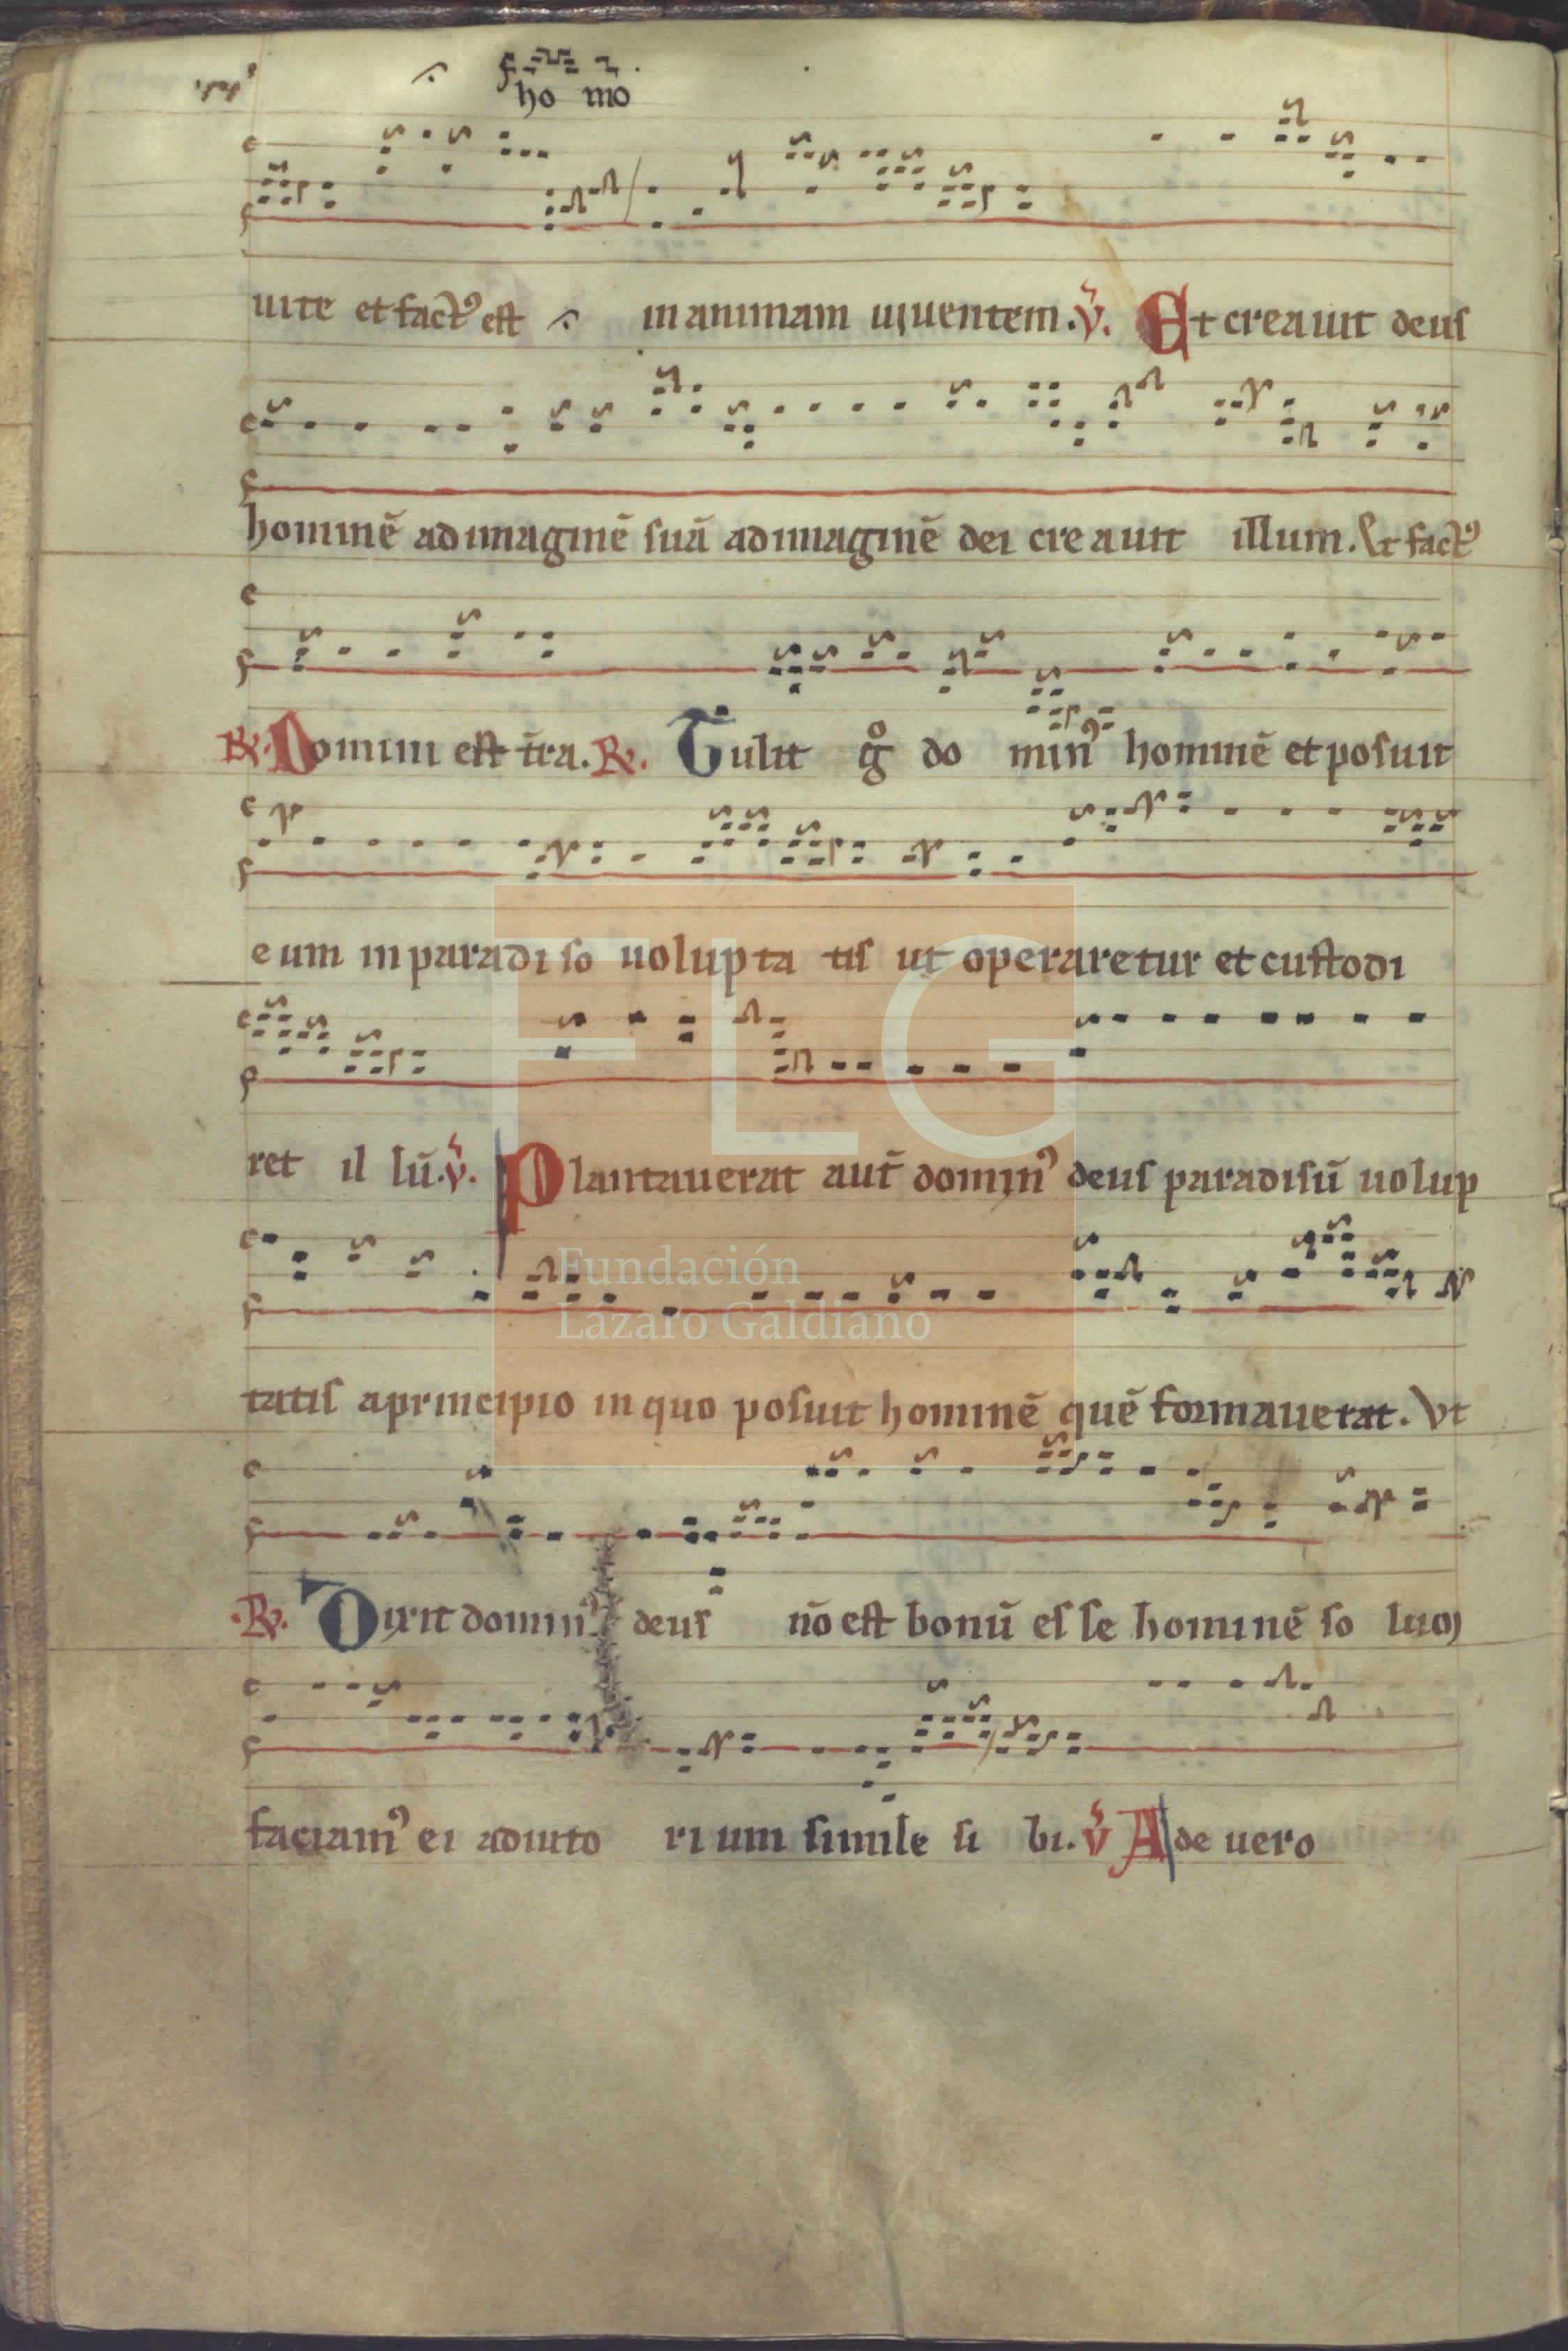 ho mo
uite et fact᷒ est in animam uiuentem. V. Et creauit deus
hominē ad imaginē suā ad imaginē dei creauit illum. Et fact᷒
R. Domini est t̄ra. R. Tulit gͦ do min᷒ hominē et posuit
eum in paradiso uolupta tis ut operaretur et custodi
ret il lū. V. Plantauerat aut̄ domin᷒ deus paradisū uolup
Fundación
Lázaro Galdiano
FLG
tatis a principio in quo posuit hominē quē formauerat. Vt
R. Dixit domin᷒ deus nō est bonū esse hominē so lum
faciam᷒ ei adiuto rium simile si bi. V. Ade uero